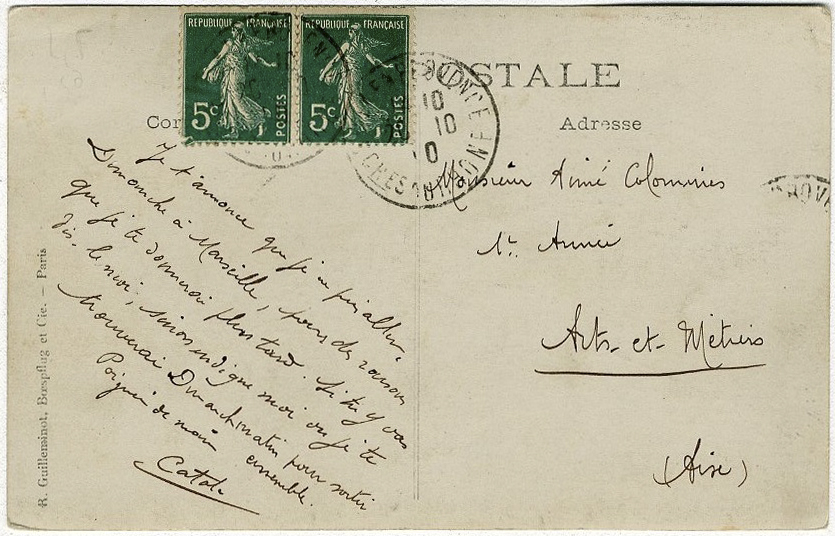 RÉPUBLIQUE FRANÇAISE
5c POSTES
RÉPUBLIQUE FRANÇAISE
5c POSTES
POSTALE
Cor
Adresse
PROVENCE
10
10
10
BOUCHES DU RHONE
Je t'annonce que je ne puis aller
Dimanche à Marseille, pour des raisons
que je te donnerai plus tard. Si tu y vas
dis-le moi; sinon indique moi où je te
trouverai Dimanche matin pour sortir
ensemble.
Poignée de main
Catala
Monsieur Aimé Colomines
1re Année
Arts-et-Métiers
(Aix)
R. Guilleminot, Bœspflug et Cie. — Paris
PROVE